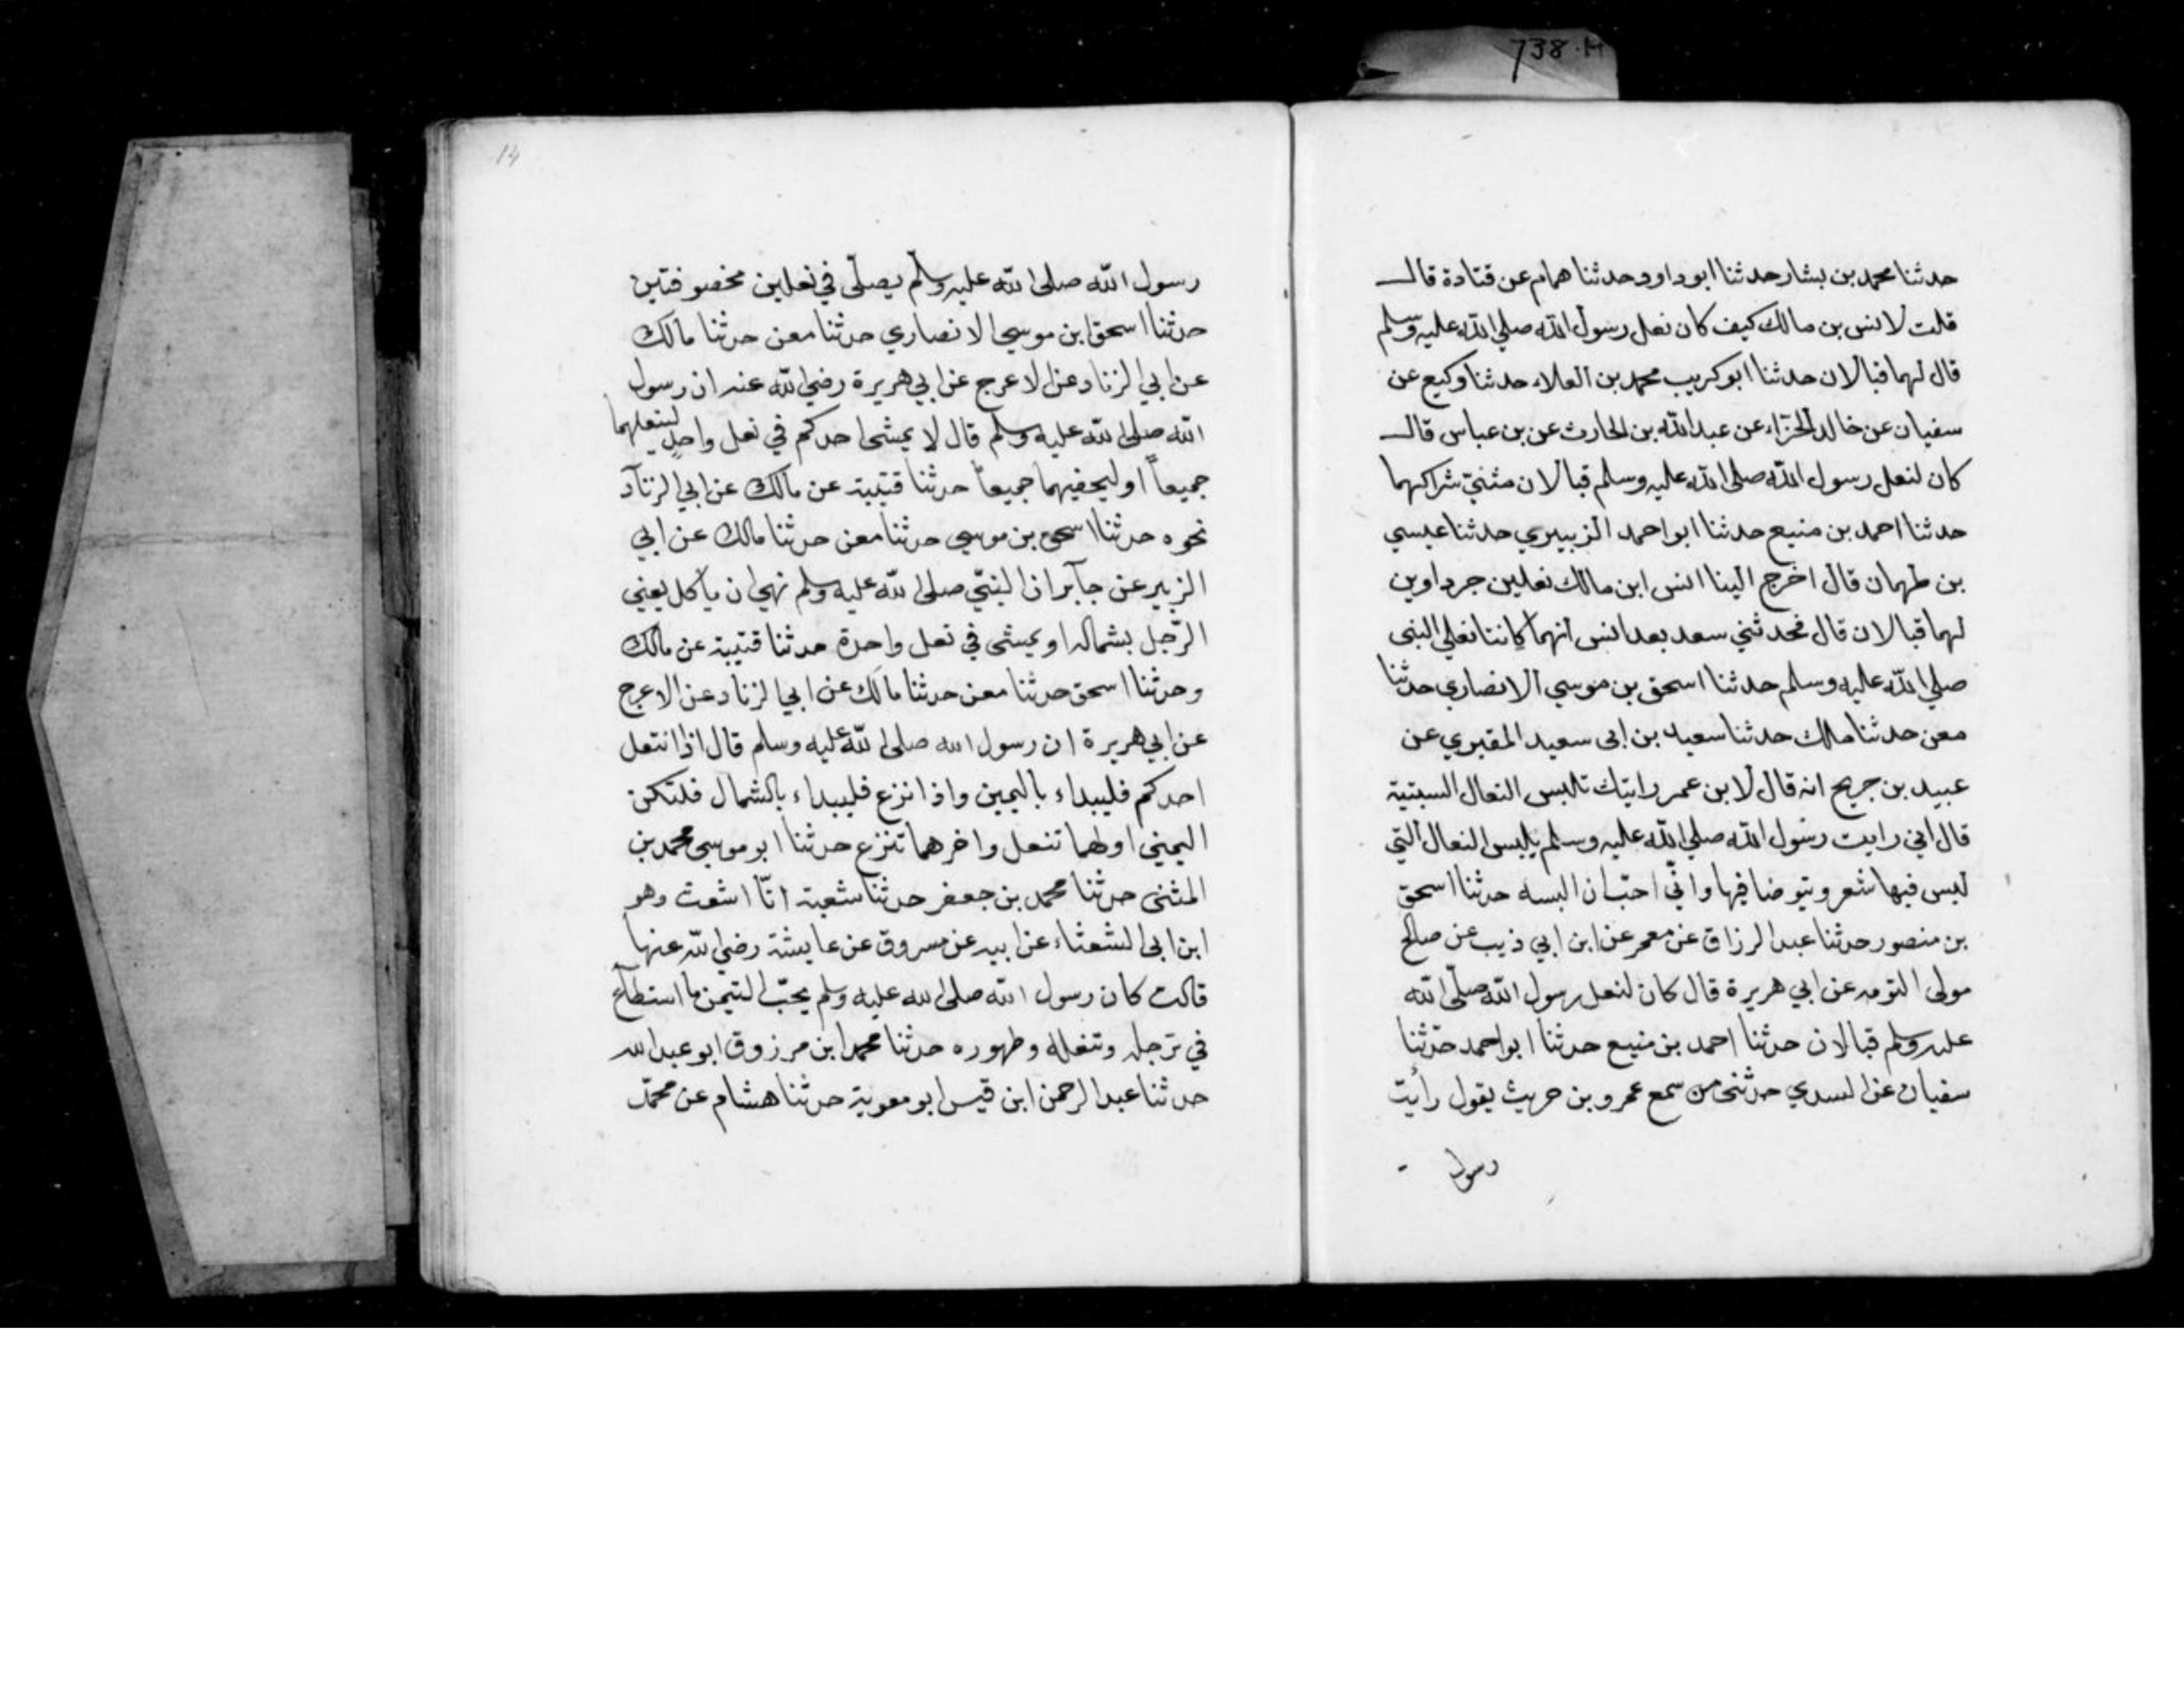 738·H
حدثنا محمد بن بشار حدثنا ابو داود حدثنا همام عن قتادة قال
قلت لانس بن مالك كيف كان نعل رسول الله صلى الله عليه وسلم
قال لهما قبالان حدثنا ابو كريب محمد بن العلاء حدثنا وكيع عن
سفيان عن خالد الحذاء عن عبد الله بن الحارث عن بن عباس قال
كان لنعل رسول الله صلى الله عليه وسلم قبالان مثنيّ شراكهما
حدثنا احمد بن منيع حدثنا ابو احمد الزبيري حدثنا عيسي
بن طهمان قال اخرج الينا انس ابن مالك نعلين جرداوين
لهما قبالان قال فحدثني سعد بعد انس انهما كانتا نعلي النبى
صلي الله عليه وسلم حدثنا اسحق بن موسي الانصاري حدثنا
معن حدثنا مالك حدثنا سعيد بن ابى سعيد المقبري عن
عبيد بن جريج انه قال لابن عمر رايتك تلبس النعال السبتية
قال اني رايت رسول الله صلي الله عليه وسلم يلبس النعال التي
ليس فيها شعر ويتوضا فيها وانّي احبّ ان البسه حدثنا اسحق
بن منصور حدثنا عبد الرزاق عن معمر عن ابن ابي ذيب عن صالح
مولى التومه عن ابي هريرة قال كان لنعل رسول الله صلّى الله
عليه وسلم قبالان حدثنا احمد بن منيع حدثنا ابو احمد حدّثنا
سفيان عن السدي حدثنى من سمع عمرو بن حريث يقول رأيت
رسول
14
رسول الله صلى الله عليه وسلم يصلّى في نعلين مخصوفتين
حدثنا اسحق ابن موسي الانصاري حدثنا معن حدثنا مالك
عن ابي الزناد عن الاعرج عن ابي هريرة رضي الله عنه ان رسول
الله صلى الله عليه وسلم قال لا يمشى احدكم في نعل واحدٍ لينعلهما
جميعاً او ليحفيهما جميعاً حدثنا قتيبة عن مالك عن ابي الزناد
نحوه حدثنا اسحق بن موسي حدثنا معن حدثنا مالك عن ابي
الزبير عن جابر ان النبيّ صلى الله عليه وسلم نهي ان ياكل يعني
الرّجل بشماله او يمشى في نعل واحدة حدثنا قتيبة عن مالك
وحدثنا اسحق حدثنا معن حدثنا مالك عن ابي الزناد عن الاعرج
عن ابي هريرة ان رسول الله صلى الله عليه وسلم قال اذا انتعل
احدكم فليبداء باليمين واذا نزع فليبداء بالشمال فلتكن
اليمني اولهما تنعل واخرهما تنزع حدثنا ابو موسي محمد بن
المثنى حدثنا محمد بن جعفر حدثنا شعبة انّا اشعث وهو
ابن ابى الشعثاء عن ابيه عن مسروق عن عايشة رضي الله عنها
قالت كان رسول الله صلى الله عليه وسلم يحبّ التيمن ما استطاع
في ترجله وتنعله وطهوره حدثنا محمد ابن مرزوق ابو عبد الله
حدثنا عبد الرحمن ابن قيس ابو معوية حدثنا هشام عن محمّد